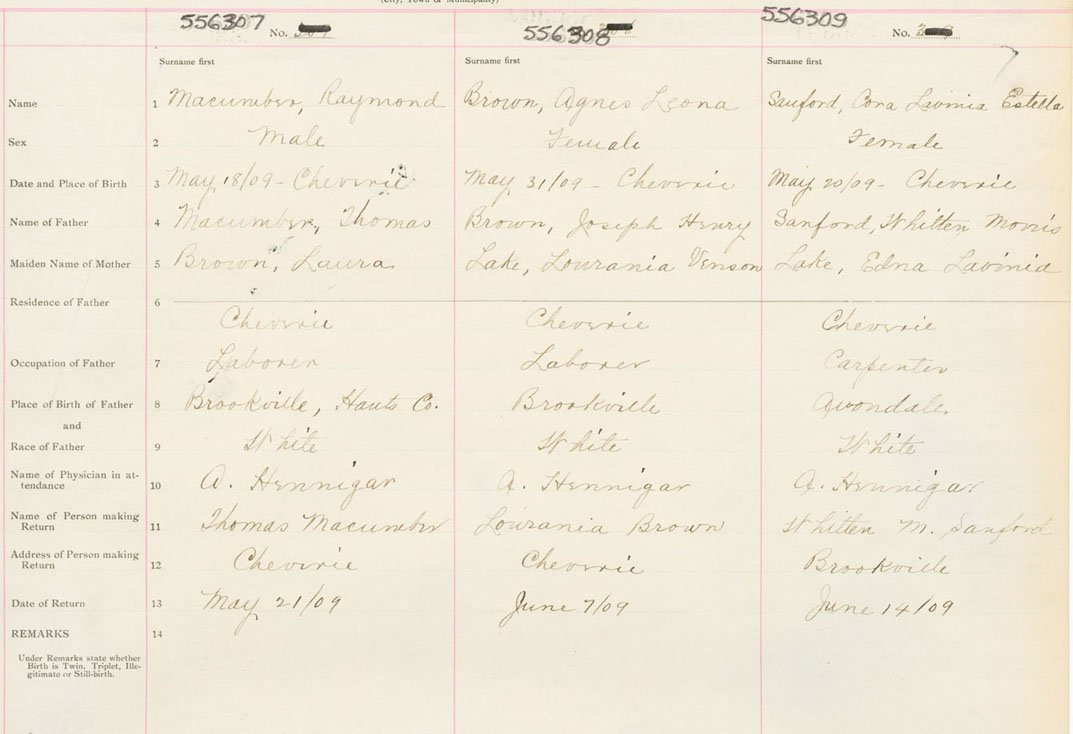 (City, Town or Municipality)
556307 No.
556308
556309 No.
Surname first Surname first Surname first
Name 1 Macumber, Raymond Brown, Agnes Leona Sanford, Cora Lavinia Estella
Sex 2 Male Female Female
Date and Place of Birth 3 May 18/09 - Cheverie May 31/09 - Cheverie May 20/09 - Cheverie
Name of Father 4 Macumber, Thomas Brown, Joseph Henry Sanford, Whitten Morris
Maiden Name of Mother 5 Brown, Laura Lake, Lourania Venson Lake, Edna Lavinia
Residence of Father 6
Cheverie Cheverie Cheverie
Occupation of Father 7 Laborer Laborer Carpenter
Place of Birth of Father 8 Brookville, Hants Co. Brookville Avondale.
and
Race of Father 9 White White White
Name of Physician in at-
tendance 10 A. Hennigar A. Hennigar A. Hennigar
Name of Person making
Return 11 Thomas Macumber Lourania Brown Whitten M. Sanford
Address of Person making
Return 12 Cheverie Cheverie Brookville
Date of Return 13 May 21/09 June 7/09 June 14/09
REMARKS 14
Under Remarks state whether
Birth is Twin, Triplet, Ille-
gitimate or Still-birth.